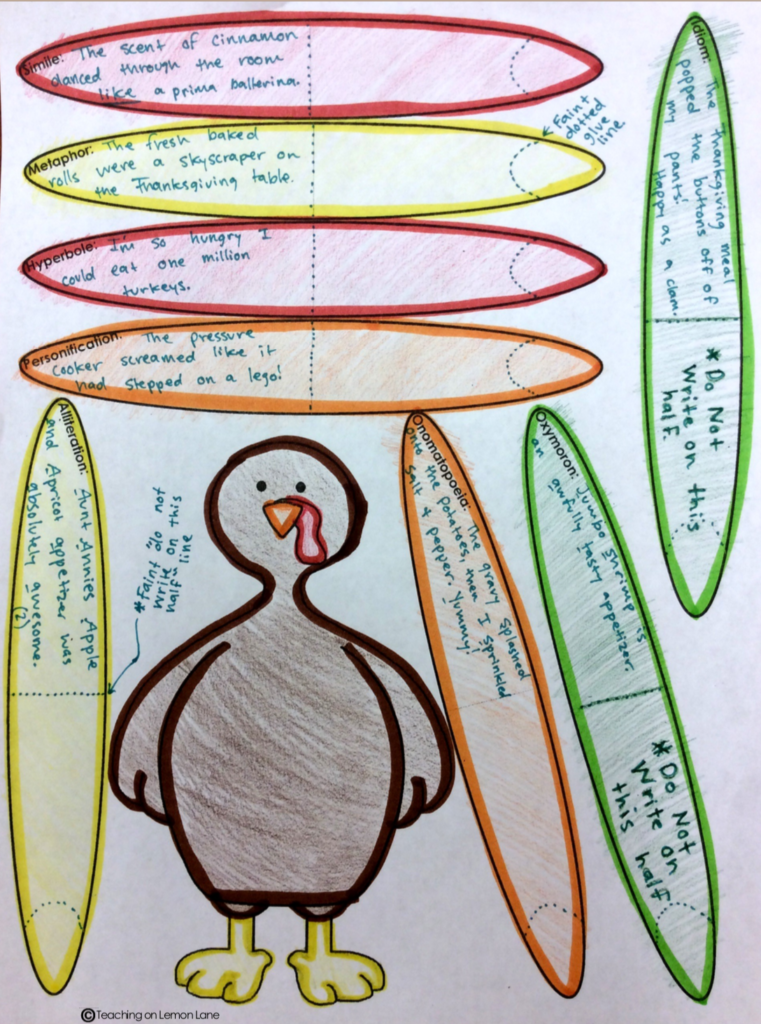 Simile: The scent of cinnamon
danced through the room
like a prima ballerina.
*Faint
dotted
glue
line.
Metaphor: The fresh baked
rolls were a skyscraper on
the Thanksgiving table.
Hyperbole: I'm so hungry I
could eat one million
turkeys.
Personification: The pressure
cooker screamed like it
had stepped on a lego!
Idiom: The Thanksgiving meal
popped the buttons off of
my pants.
Happy as a clam.
*Do Not
Write on this
half.
Alliteration: Aunt Annies Apple
and Apricot appetizer was
absolutely awesome.
(2)
*Faint "do not
write on this
half" line
Onomatopoeia: The gravy splashed
onto the potatoes, then I sprinkled
salt & pepper. Yummy!
Oxymoron: Jumbo Shrimp is
an awfully tasty appetizer.
*Do Not
Write on
this half
©Teaching on Lemon Lane